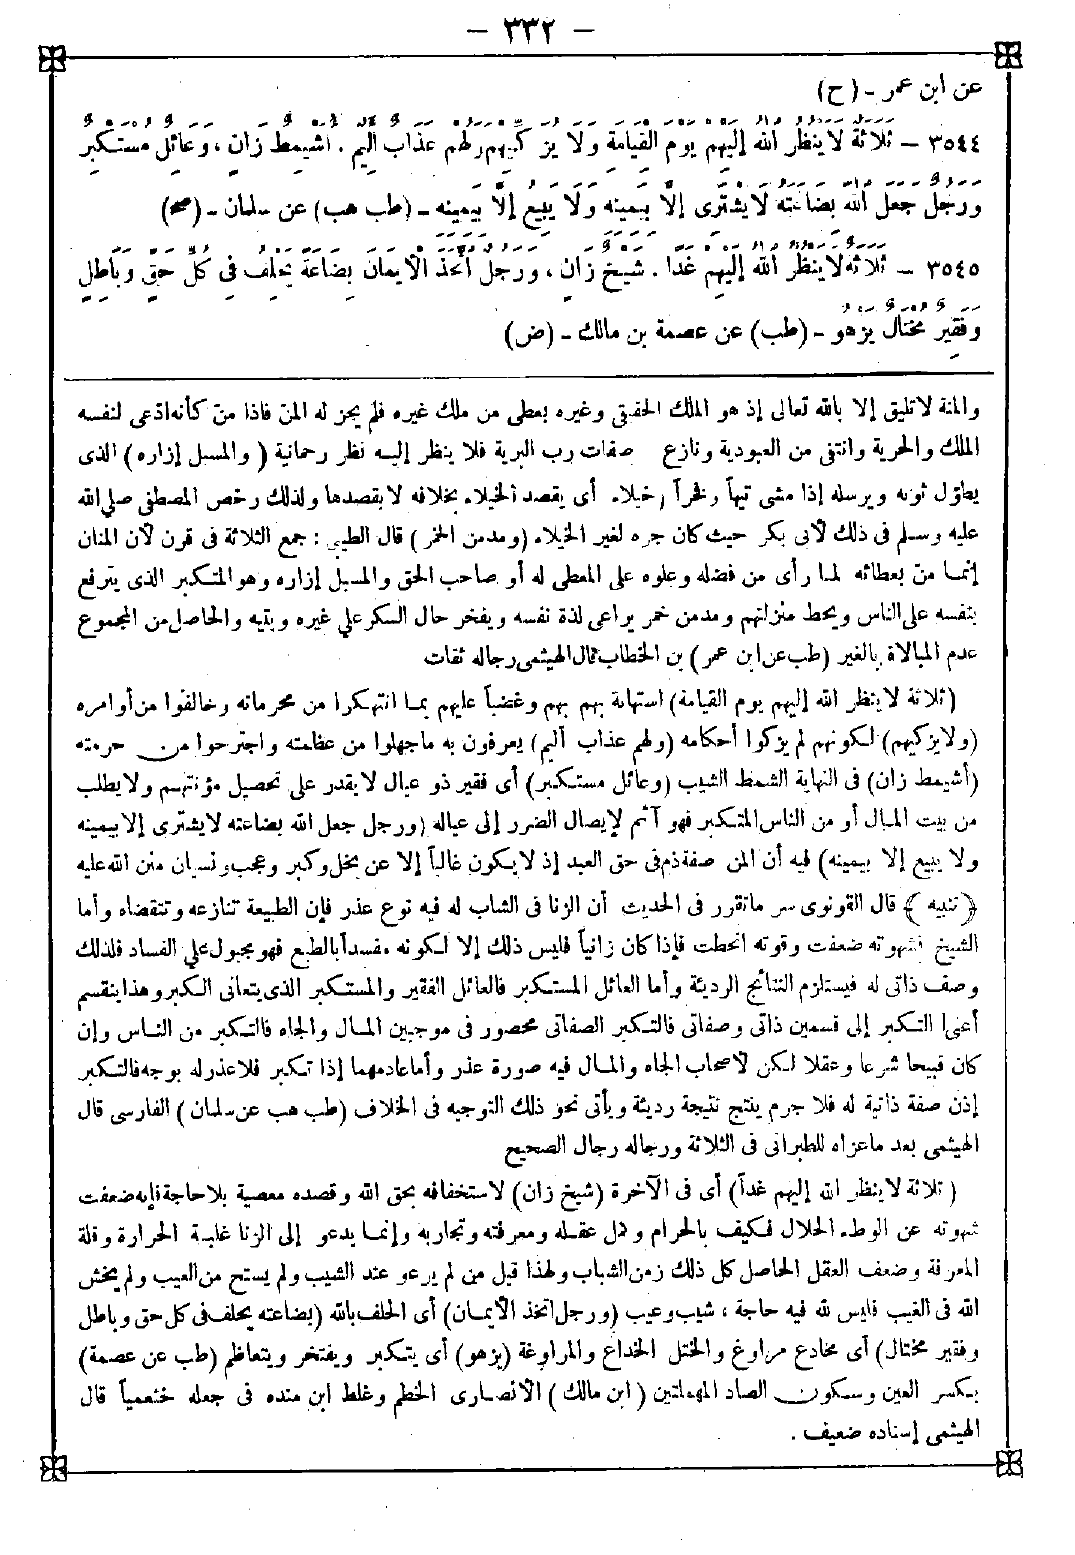 - ٣٣٢ -
عن ابن عمر - (ح)
٣٥٤٤ - ثَلَاثَةٌ لَا يَنْظُرُ اللهُ إِلَيْهِمْ يَوْمَ الْقِيَامَةِ وَلَا يُزَكِّيهِمْ وَلَهُمْ عَذَابٌ أَلِيمٌ . أُشَيْمِطٌ زَانٍ ، وَعَائِلٌ مُسْتَكْبِرٌ
وَرَجُلٌ جَعَلَ اللهَ بِضَاعَتَهُ لَا يَشْتَرِى إِلَّا بِيَمِينِهِ وَلَا يَبِيعُ إِلَّا بِيَمِينِهِ - (طب هب) عن سلمان - (صح)
٣٥٤٥ - ثَلَاثَةٌ لَا يَنْظُرُ اللهُ إِلَيْهِمْ غَدًا . شَيْخٌ زَانٍ ، وَرَجُلٌ اتَّخَذَ الْأَيْمَانَ بِضَاعَةً يَحْلِفُ فِى كُلِّ حَقٍّ وَبَاطِلٍ
وَفَقِيرٌ مُخْتَالٌ يَزْهُو - (طب) عن عصمة بن مالك - (ض)
والمنة لا تليق إلا بالله تعالى إذ هو الملك الحقيقى وغيره يعطى من ملك غيره فلم يجز له المن فاذا من كأنه ادعى لنفسه
الملك والحرية وانتفى من العبودية ونازع صفات رب البرية فلا ينظر إليه نظر رحمانية (والمسبل إزاره) الذى
يطوّل ثوبه ويرسله إذا مشى تيهاً وفخراً (خيلاء) أى يقصد الخيلاء بخلافه لا بقصدها ولذلك رخص المصطفى صلي الله
عليه وسلم فى ذلك لأبى بكر حيث كان جره لغير الخيلاء (ومدمن الخمر) قال الطيبى : جمع الثلاثة فى قرن لأن المنان
إنما منّ بعطائه لما رأى من فضله وعلوه على المعطى له أو صاحب الحق والمسبل إزاره وهو المتكبر الذى يترفع
بنفسه على الناس ويحط منزلتهم ومدمن خمر يراعى لذة نفسه ويفخر حال السكر علي غيره ويتيه والحاصل من المجموع
عدم المبالاة بالغير (طب عن ابن عمر) بن الخطاب قال الهيثمى رجاله ثقات
(ثلاثة لا ينظر الله إليهم يوم القيامة) استهانة بهم بهم وغضباً عليهم بما انتهكوا من محرماته وخالفوا من أوامره
(ولا يزكيهم) لكونهم لم يزكوا أحكامه (ولهم عذاب أليم) يعرفون به ما جهلوا من عظمته واجترحوا من حرمته
(أشيمط زان) فى النهاية الشمط الشيب (وعائل مستكبر) أى فقير ذو عيال لا يقدر على تحصيل مؤنتهم ولا يطلب
من بيت المال أو من الناس المتكبر فهو آثم لإيصال الضرر إلى عياله (ورجل جعل الله بضاعته لا يشترى إلا بيمينه
ولا يبيع إلا بيمينه) فيه أن المن صفة ذم فى حق العبد إذ لا يكون غالباً إلا عن بخل وكبر وعجب ونسيان منن الله عليه
﴿ تنبيه ﴾ قال القونوى سر ما تقرر فى الحديث أن الزنا فى الشاب له فيه نوع عذر فإن الطبيعة تنازعه وتتقضاه وأما
الشيخ فشهوته ضعفت وقوته انحطت فإذا كان زانياً فليس ذلك إلا لكونه مفسداً بالطبع فهو مجبول علي الفساد فلذلك
وصف ذاتى له فيستلزم النتائج الرديئة وأما العائل المستكبر فالعائل الفقير والمستكبر الذى يتعانى الكبر وهذا ينقسم
أعنى التكبر إلى قسمين ذاتى وصفاتى فالتكبر الصفاتى محصور فى موجبين المال والجاه فالتكبر من الناس وإن
كان قبيحا شرعا وعقلا لكن لأصحاب الجاه والمال فيه صورة عذر وأما عادمهما إذا تكبر فلا عذر له بوجه فالتكبر
إذن صفة ذاتية له فلا جرم ينتج نتيجة رديئة ويأتى نحو ذلك التوجيه فى الخلاف (طب هب عن سلمان) الفارسى قال
الهيثمى بعد ما عزاه للطبرانى فى الثلاثة ورجاله رجال الصحيح
(ثلاثة لا ينظر الله إليهم غداً) أى فى الآخرة (شيخ زان) لاستخفافه بحق الله وقصده معصية بلا حاجة فإنه ضعفت
شهوته عن الوطء الحلال فكيف بالحرام وكمل عقله ومعرفته وتجاربه وإنما يدعو إلى الزنا غلبة الحرارة وقلة
المعرفة وضعف العقل الحاصل كل ذلك زمن الشباب ولهذا قيل من لم يرعو عند الشيب ولم يستح من العيب ولم يخش
الله فى الغيب فليس لله فيه حاجة ، شيب وعيب (ورجل اتخذ الأيمان) أى الحلف بالله (بضاعته يحلف فى كل حق وباطل
وفقير مختال) أى مخادع مراوغ والختل الخداع والمراوغة (يزهو) أى يتكبر ويفتخر ويتعاظم (طب عن عصمة)
بكسر العين وسكون الصاد المهملتين (ابن مالك) الأنصارى الخطم وغلط ابن منده فى جعله خثعمياً قال
الهيثمى إسناده ضعيف .